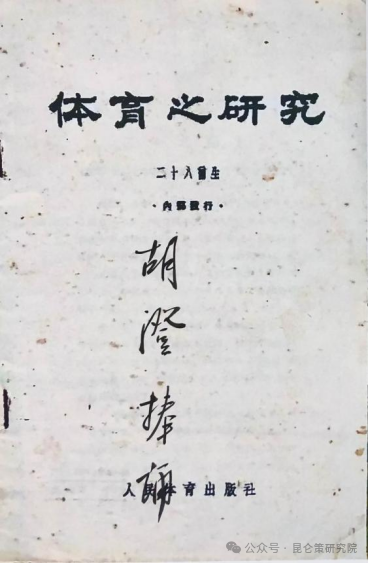 体育之研究
二十八画生
·内部发行·
胡
澄
捧
人民体育出版社
公众号·昆仑策研究院